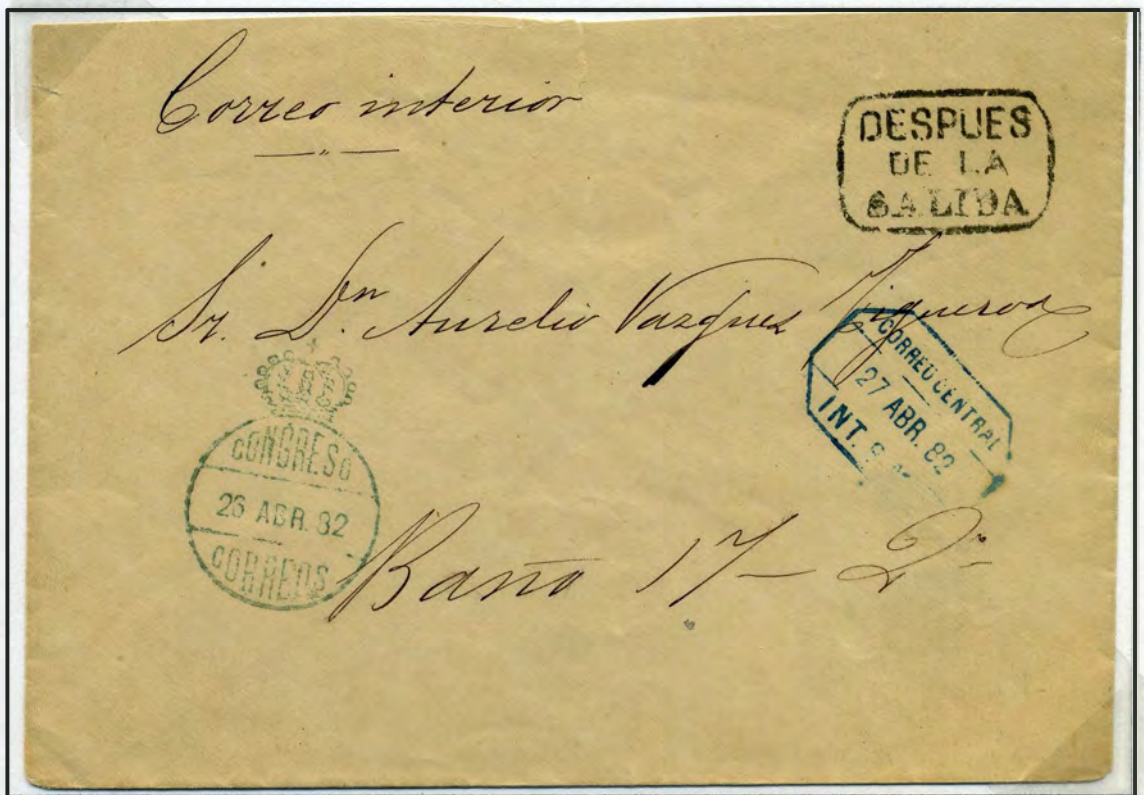 Correo interior
DESPUES
DE LA
SALIDA
Sr. Dn. Aurelio Vazquez Figueroa
CORREO CENTRAL
27 ABR. 82
INT.
CONGRESO
26 ABR. 82
CORREOS
Baño 17- 2º